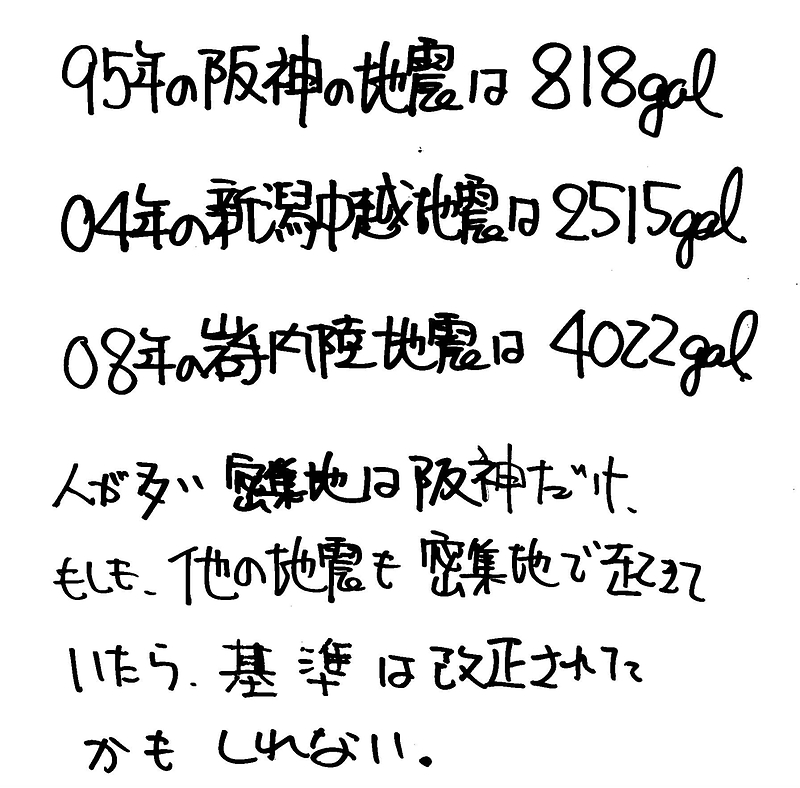 95年の阪神の地震は 818gal
04年の新潟中越地震は2515gal
08年の岩手内陸地震は 4022gal
人が多い 密集地は阪神だけ、
もしも、他の地震も 密集地で起きて
いたら、基準は改正されてた
かも しれない。